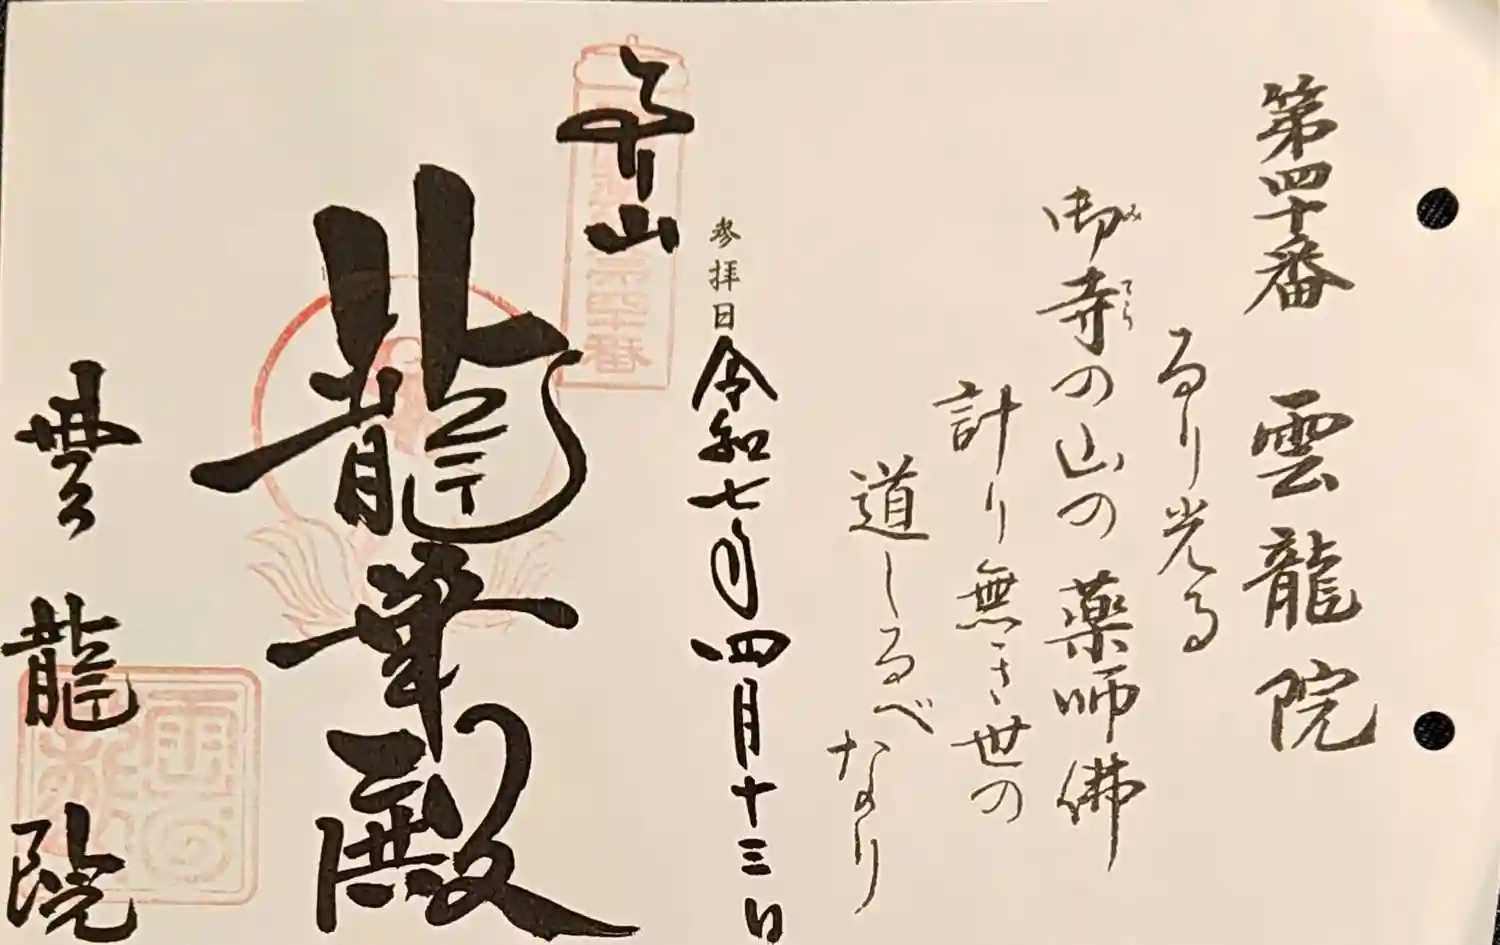 第四十番 雲龍院
るり光る
御寺の山の薬師佛
みてら
計り無き世の
道しるべなり
参拝日 令和七年四月十三日
龍華殿
雲龍院